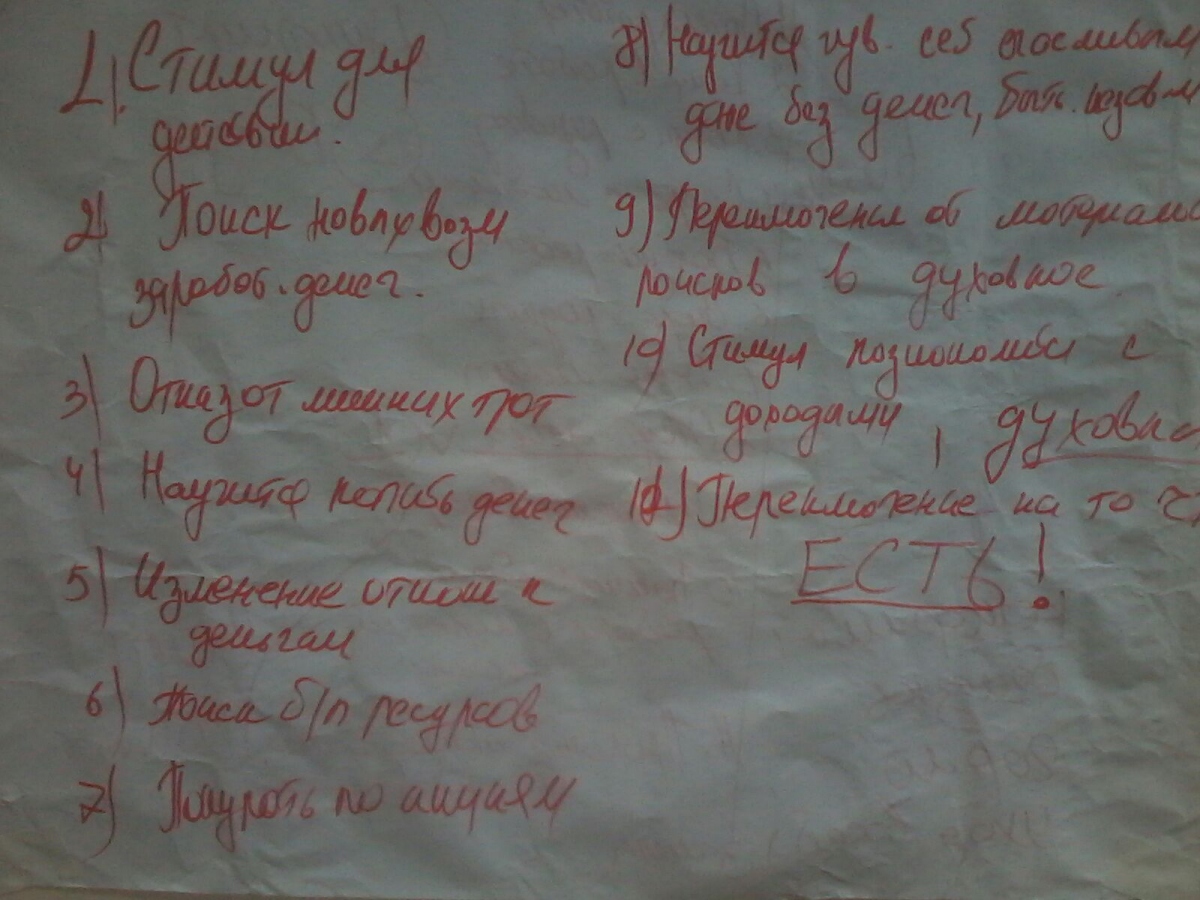 1. Стимул для
действий.
2) Поиск новых возм
заработ. денег.
3) Отказ от лишних трат
4) Научится копить денег
5) Изменение отнош к
деньгам
6) Поиск б/п ресурсов
7) по акциям
8) Научится чув. себ счасливым
даже без денег, быть независ
9) Переключения об материаль
поисков в духовное.
10) Стимул познакомься с
, духовно
11) Переключение на то ч
ЕСТЬ!